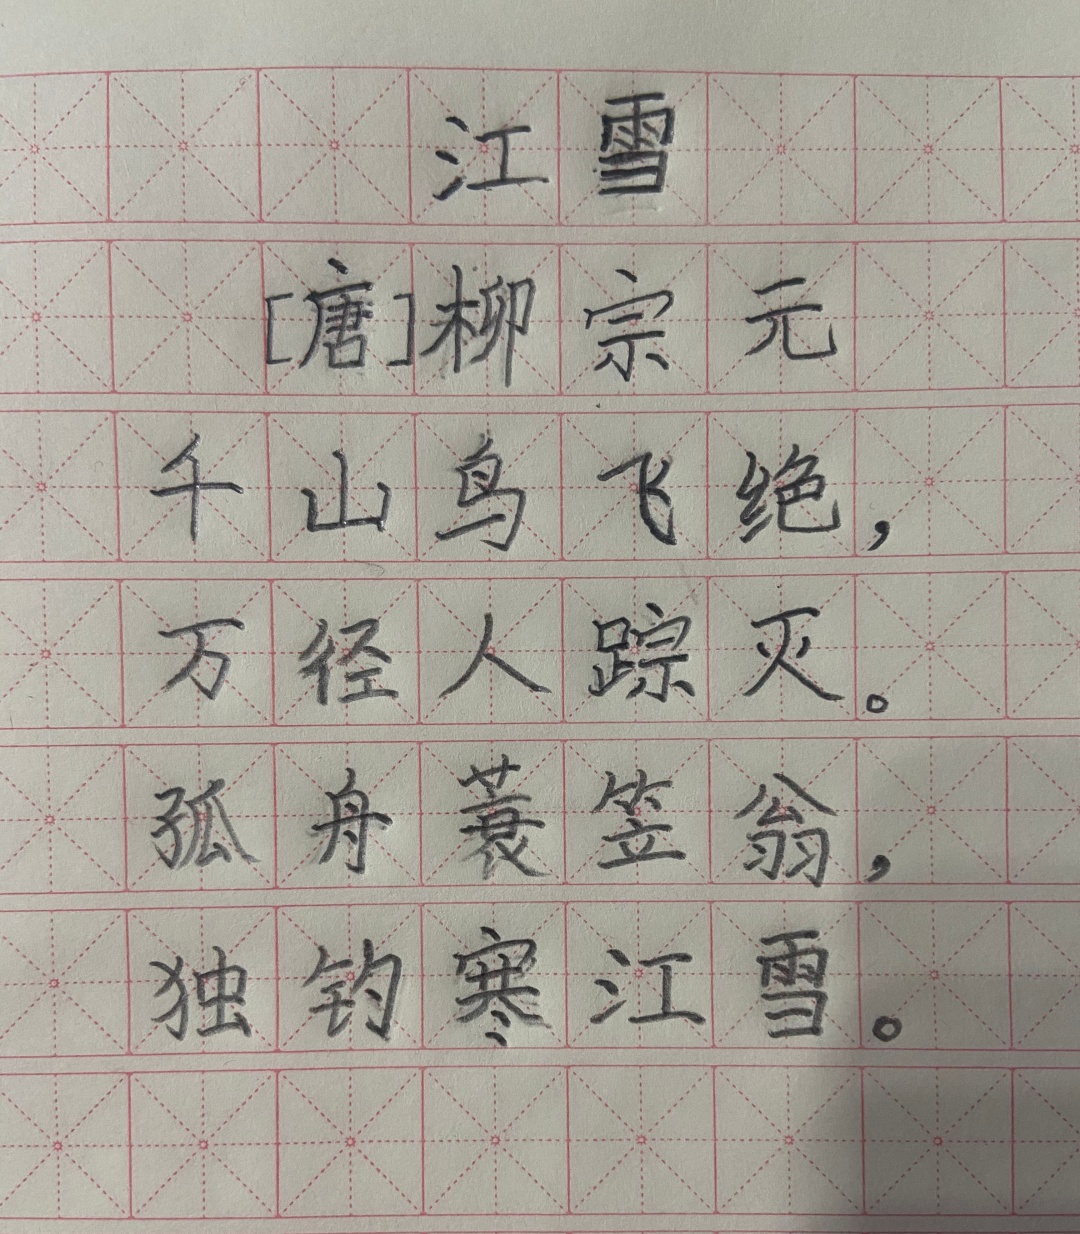 江雪
[唐]柳宗元
千山鸟飞绝，
万径人踪灭。
孤舟蓑笠翁，
独钓寒江雪。